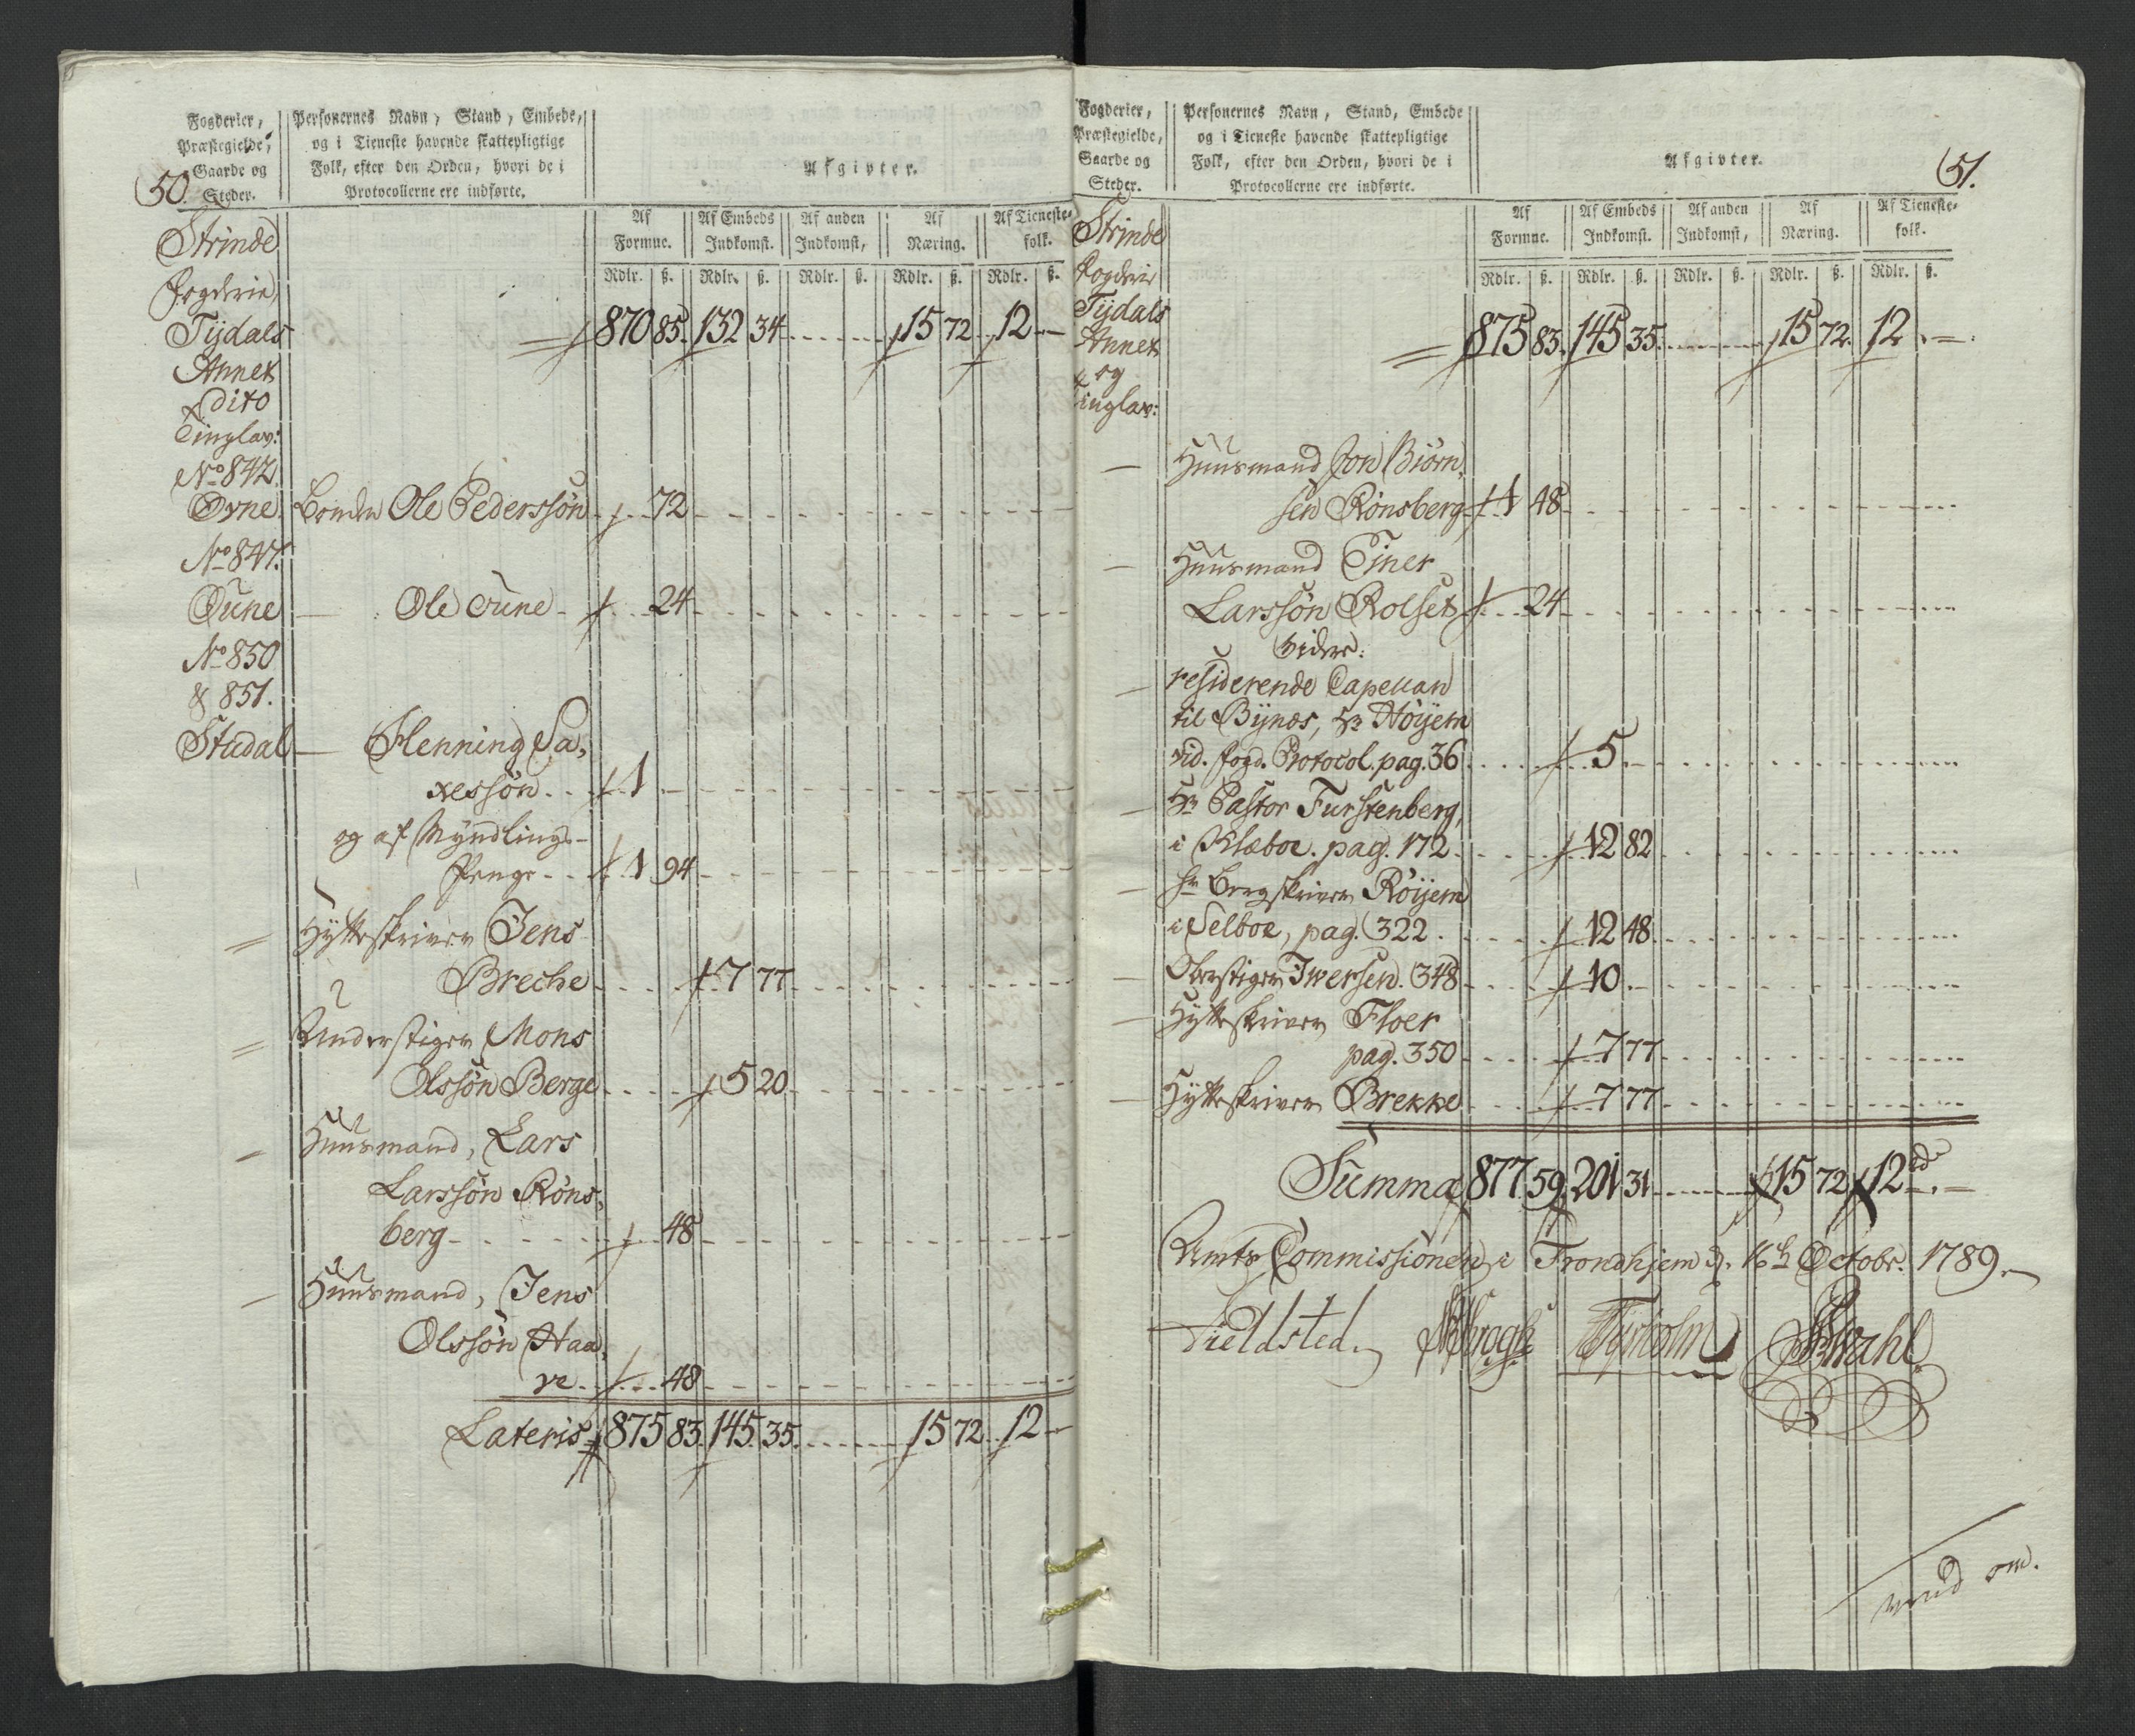 50.
Fogderier,
Præstegielde,
Gaarde og
Steder.
Personernes Navn, Stand, Embede,
og i Tieneste havende skattepligtige
Folk, efter den Orden, hvori de i
Protocollerne ere indførte.
Afgivter.
Af Formue.
Af Embeds Indkomst.
Af anden Indkomst,
Af Næring.
Af Tieneste-folk.
Rdlr. ß. Rdlr. ß. Rdlr. ß. Rdlr. ß. Rdlr. ß.
Strinde
Fogderie
Tydals 870 85. 132 34 15 72. 12 —
Annex
& dito
Tinglav:
No 842.
Øvne Bonden Ole Pederssøn 72
No 847.
Oune — Ole Oune 24
No 850
& 851.
Stuedal — Henning Sa,
xessøn 1 —
og af Myndlings-
Penge 1 94
Hytteskriver Jens
Breche 7 77
Understiger Mons
Olssøn Berge 5 20
Huusmand, Lars
Larssøn Røns,
berg 48
Huusmand, Jens
Olssøn Haa,
re 48
Lateris 875 83. 145. 35. 15 72. 12 —
51.
Fogderier,
Præstegielde,
Gaarde og
Steder.
Personernes Navn, Stand, Embede
og i Tieneste havende skattepligtige
Folk, efter den Orden, hvori de i
Protocollerne ere indførte.
Afgivter.
Af Formue.
Af Embeds Indkomst.
Af anden Indkomst,
Af Næring.
Af Tieneste-folk.
Rdlr. ß. Rdlr. ß. Rdlr. ß. Rdlr. ß. Rdlr. ß.
Strinde
Fogderie
Tydals 875 83. 145 35. 15 72. 12. —
Annex
og
Tinglav:
— Huusmand Jon Biörn,
sen Rønsberg 1 48
— Huusmand Einer
Larssøn Rolset 24
Vider:
— residerende Capellan
til Bynæs, Hr Høyem
vid. Fogd. Protocol. pag. 36 5. —
— Hr Pastor Furstenberg,
i Klæboe. pag. 172 12 82
— Hr Bergskriver Røyem
i Selboe, pag. 322. 12 48
— Oberstiger Iwersen. 348 10. —
— Hytteskriver Floer
pag. 350 7 77
— Hytteskriver Brekke 7 77
Summa 877 59. 201 31 15 72 12 —
Amts Commissionen i Trondhjem d. 16de Octobr. 1789. —
Fieldsted. Krogh
vend om.